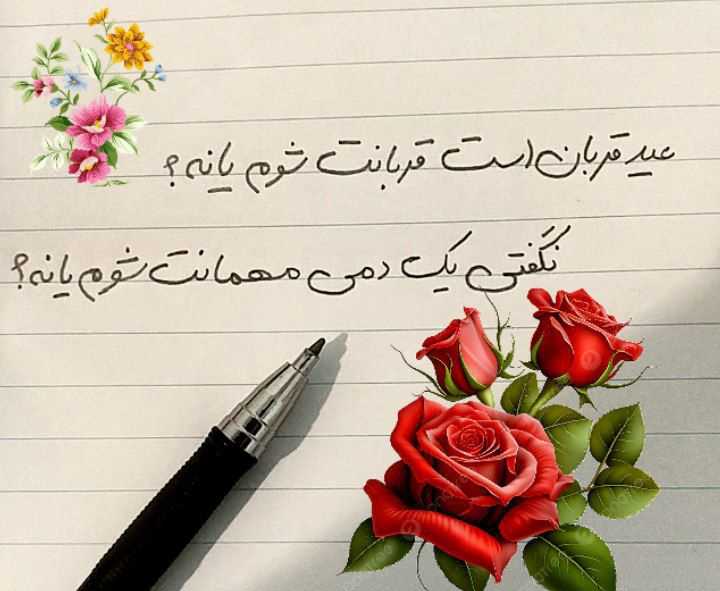 عید قربان است قربانت شوم یا نه؟
نگفتی یک دمی مهمانت شوم یا نه؟